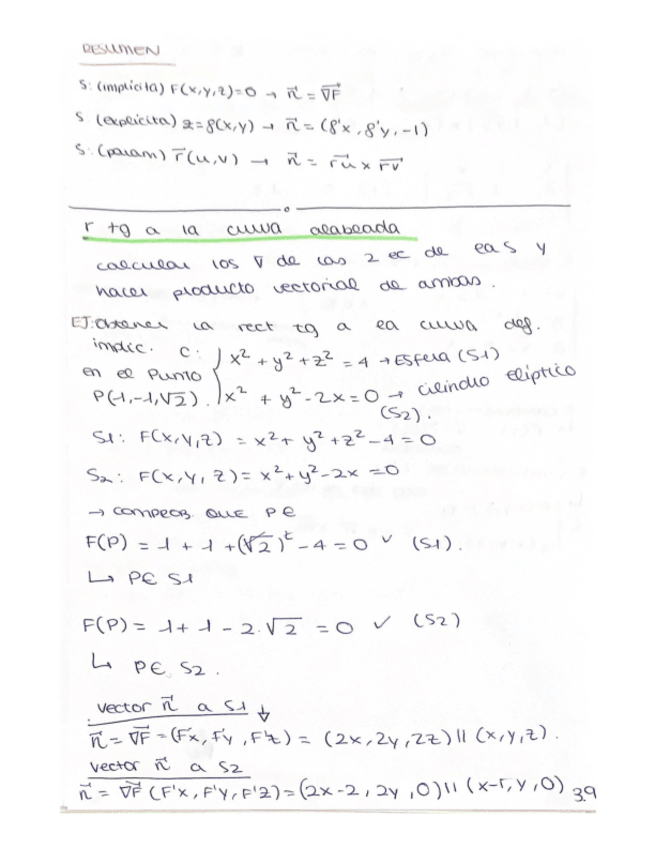 RESUMEN
S: (implícita) F(x,y,z)=0 → n⃗ = ∇F
S: (explícita) z=f(x,y) → n⃗ = (f'x, f'y, -1)
S: (param) r⃗(u,v) → n⃗ = r⃗u x r⃗v
r tg a la curva alabeada
calcular los ∇ de las 2 ec de ea S y
hacer producto vectorial de ambas.
EJ: obtener la rect tg a ea curva def.
implíc. C: { x² + y² + z² = 4 → Esfera (S1)
en el punto
P(1,-1,√2). x² + y² - 2x = 0 → cilindro elíptico
(S2).
S1: F(x,y,z) = x² + y² + z² - 4 = 0
S2: F(x,y,z) = x² + y² - 2x = 0
→ comprob que P∈
F(P) = 1 + 1 + (√2)² - 4 = 0 ✓ (S1).
↳ P∈ S1
F(P) = 1 + 1 - 2·√2 = 0 ✓ (S2)
↳ P∈ S2.
vector n⃗ a S1 ↓
n⃗ = ∇F = (F'x, F'y, F'z) = (2x, 2y, 2z) || (x,y,z).
vector n⃗ a S2
n⃗ = ∇F (F'x, F'y, F'z) = (2x-2, 2y, 0) || (x-1, y, 0) 39